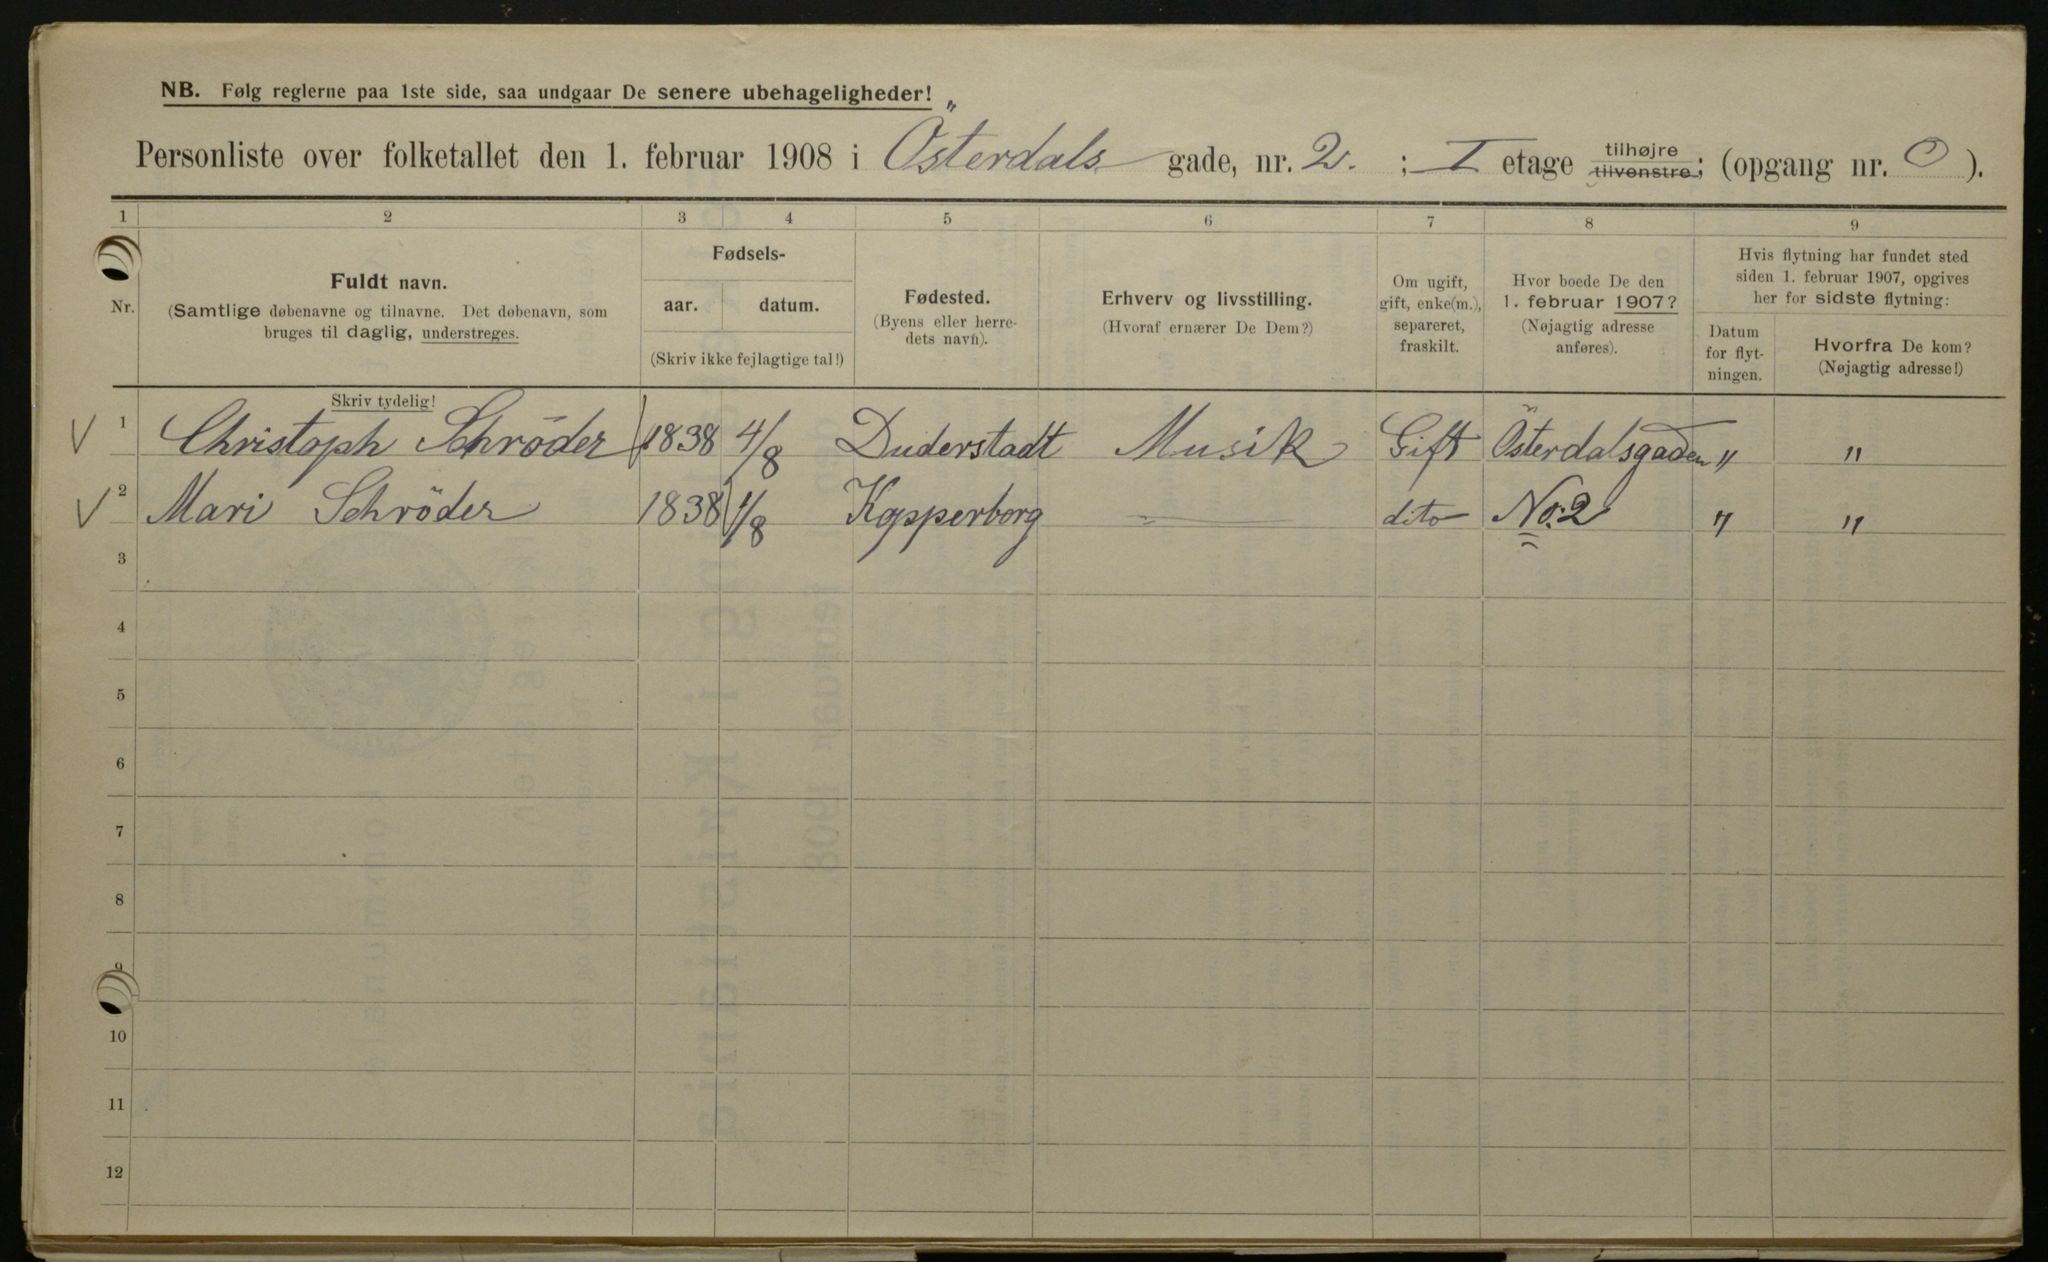 NB. Følg reglerne paa 1ste side, saa undgaar De senere ubehageligheder!
Personliste over folketallet den 1. februar 1908 i Österdals gade, nr. 2. ; I etage tilhøjre tilvenstre; (opgang nr. O ).
1 2 3 4 5 6 7 8 9
Nr.
Fuldt navn.
(Samtlige døbenavne og tilnavne. Det døbenavn, som
bruges til daglig, understreges.
Fødsels-
aar. datum.
(Skriv ikke fejlagtige tal!)
Fødested.
(Byens eller herre-
dets navn).
Erhverv og livsstilling.
(Hvoraf ernærer De Dem?)
Om ugift,
gift, enke(m.),
separeret,
fraskilt.
Hvor boede De den
1. februar 1907?
(Nøjagtig adresse
anføres).
Hvis flytning har fundet sted
siden 1. februar 1907, opgives
her for sidste flytning:
Datum
for flyt-
ningen.
Hvorfra De kom?
(Nøjagtig adresse!)
Skriv tydelig!
1 Christoph Schröder 1838 4/8 Duderstadt Musik Gift Österdalsgaden " "
2 Mari Schröder 1838 1/8 Kopperborg - dito No: 2 " "
3
4
5
6
7
8
9
10
11
12